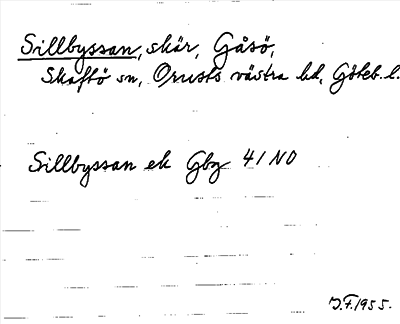 Sillbyssan, skär, Gåsö,
Skaftö sn, Orusts västra hd, Göteb. l.
Sillbyssan ek Gbg 41 NO
J.F. 1955.